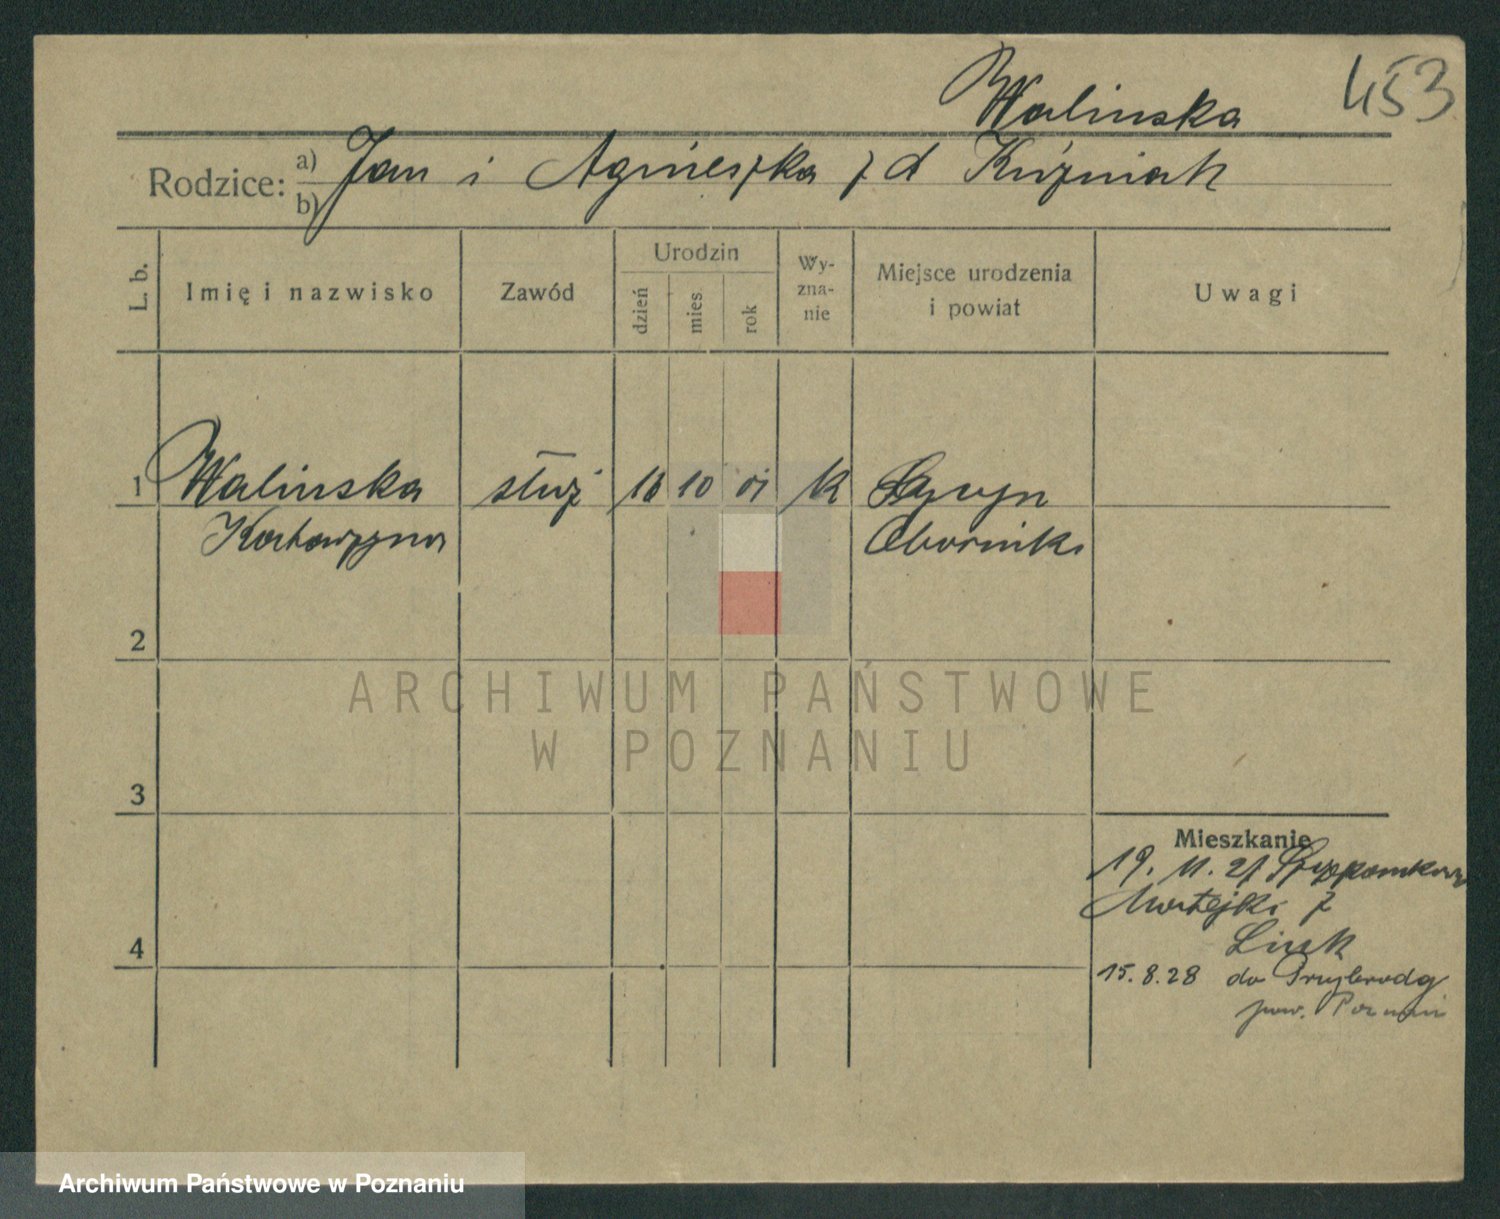 453
Walinska
Rodzice: a) Jan i Agnieszka z d Kuźniak
b)
L. b.
Imię i nazwisko
Zawód
Urodzin
dzień
mies
rok
Wy-
zna-
nie
Miejsce urodzenia
i powiat
Uwagi
1 Walinska służ 10 10 01 k
Katarzyna Oborniki
2
ARCHIWUM PAŃSTWOWE
W POZNANIU
3
Mieszkanie
19. 11. 27
Matejki 7
4
15.8.28 do Przybrody
pow. Poznań
Archiwum Państwowe w Poznaniu